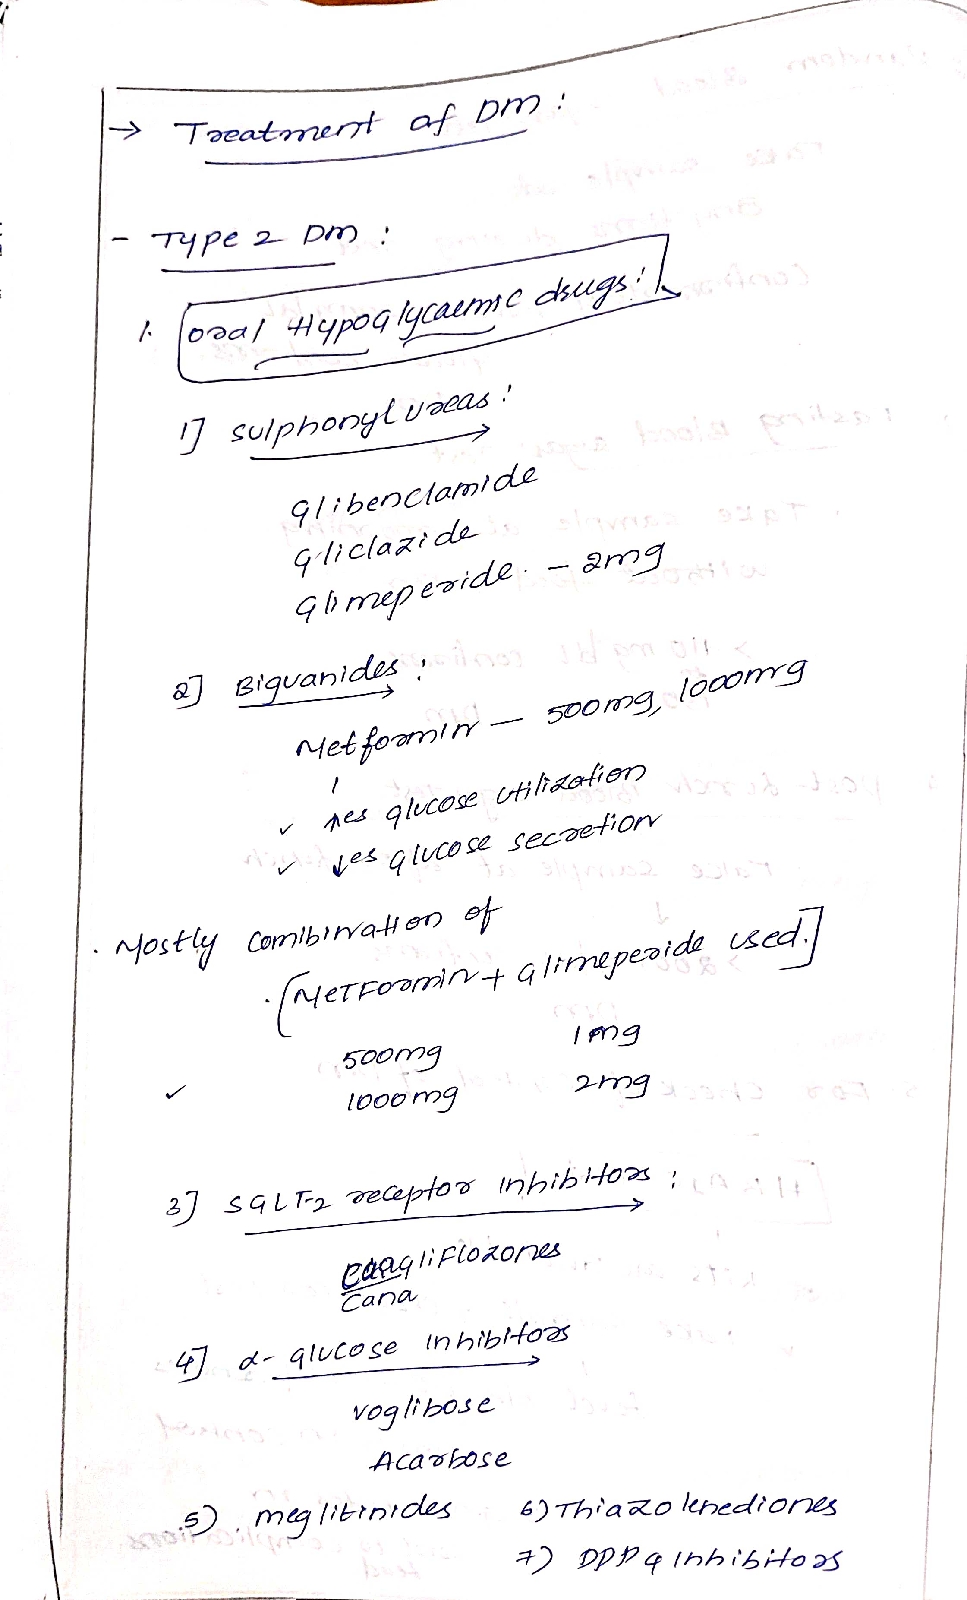 → Treatment of DM :
- Type 2 DM :
1. Oral Hypoglycaemic drugs :
1] Sulphonyl ureas :
Glibenclamide
Gliclazide
Glimeperide. - 2mg
2] Biguanides :
Metformin — 500mg, 1000mg
↑es glucose utilization
↓es glucose secretion
. Mostly Combination of
. [Metformin + Glimeperide used.]
500mg 1mg
1000mg 2mg
3] SGLT-2 receptor inhibitors :
gliflozones
Cana
4] α- glucose inhibitors
Voglibose
Acarbose
5) meglitinides 6) Thiazolenediones
7) DPP4 inhibitors